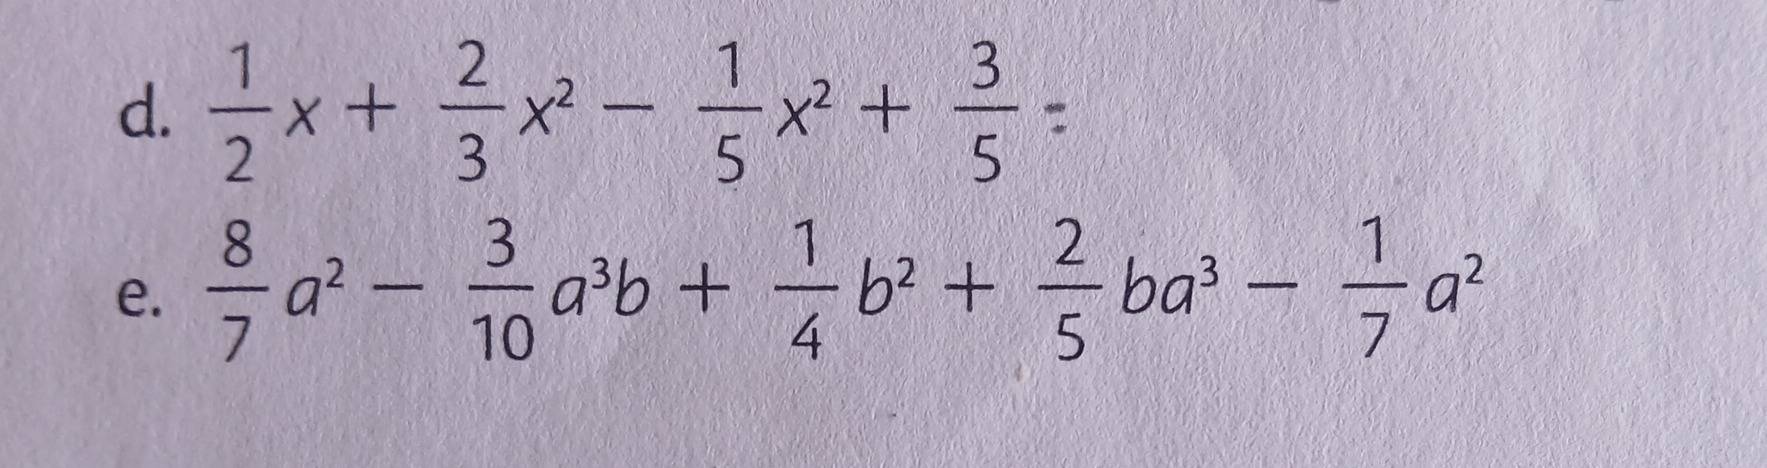 d. \frac{1}{2}x + \frac{2}{3}x² − \frac{1}{5}x² + \frac{3}{5} =
e. \frac{8}{7}a² − \frac{3}{10}a³b + \frac{1}{4}b² + \frac{2}{5}ba³ − \frac{1}{7}a²